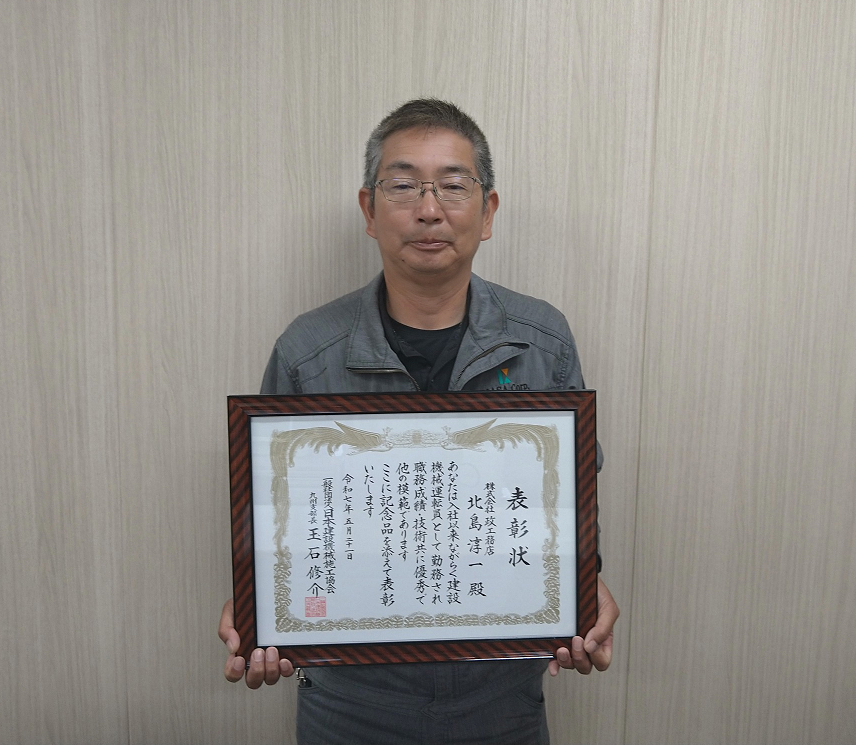 表彰状
株式会社 政工務店
北島淳一殿
あなたは入社以来ながらく建設
機械運転員として勤務され
職務成績・技術共に優秀で
他の模範であります
ここに記念品を添えて表彰
いたします
令和七年五月二十一日
一般社団法人日本建設機械施工協会
九州支部長 玉石修介
Corp.